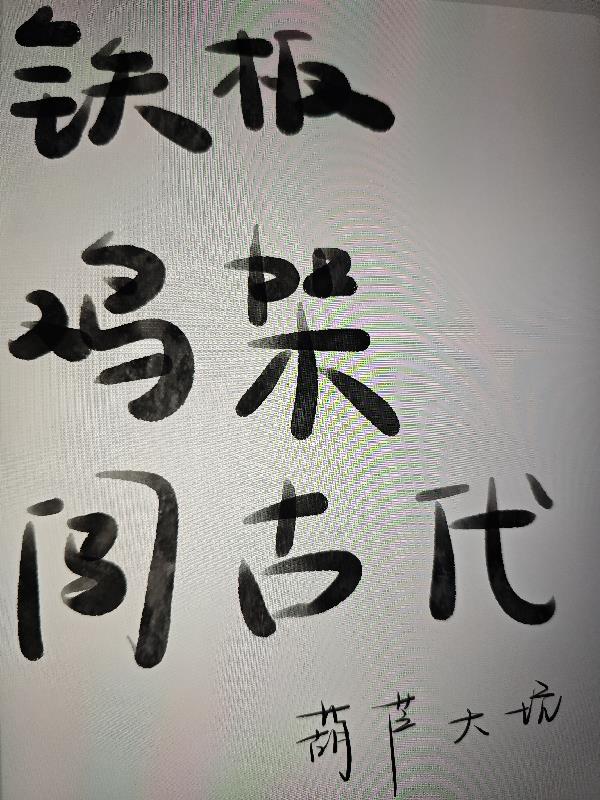 铁板
鸡架
闯古代
葫芦大坑